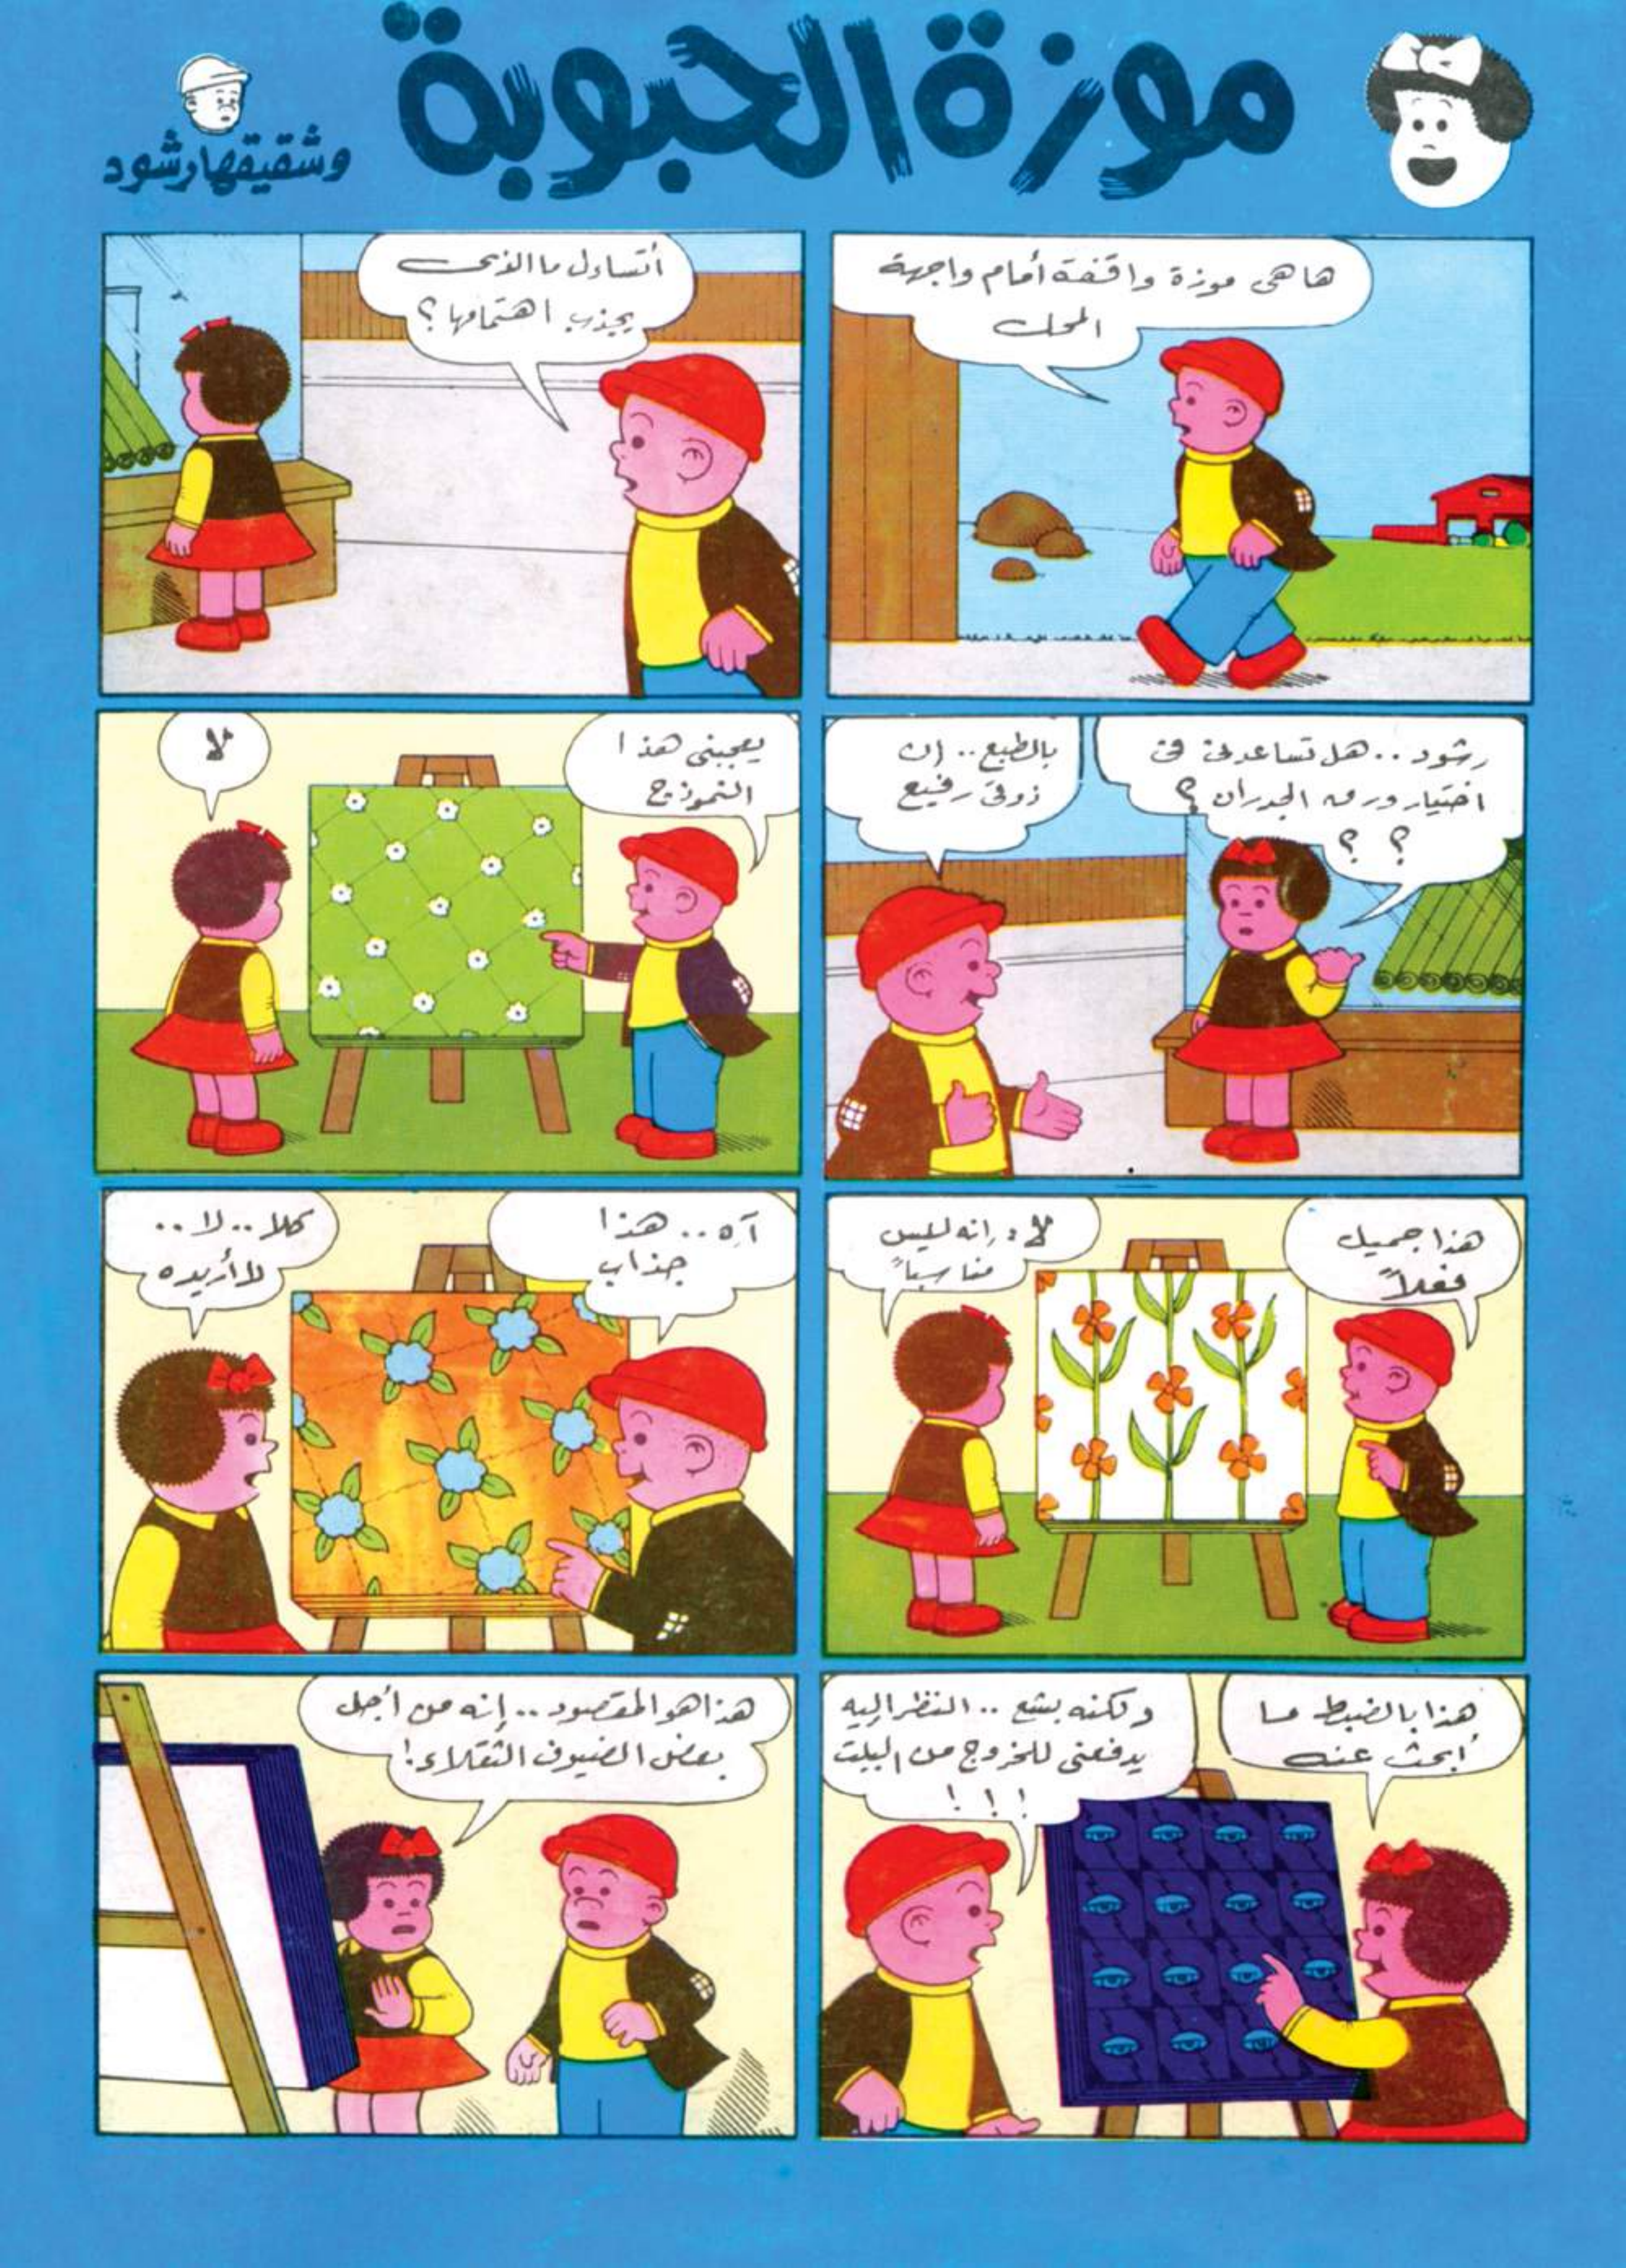 موزة الحبوبة
وشقيقها رشود
ها هى موزة واقفة أمام واجهة
المحل
أتساءل ما الذى
يجذب اهتمامها ؟
رشود .. هل تساعدنى فى
اختيار ورق الجدران ؟
؟ ؟
بالطبع .. إن
ذوقى رفيع
يعجبنى هذا
النموذج
لا
هذا جميل
فعلاً
لا ، إنه ليس
مناسباً
آه .. هذا
جذاب
كلا .. لا ..
لا أريده
هذا بالضبط ما
أبحث عنه
ولكنه بشع .. النظر إليه
يدفعنى للخروج من البيت
! ! !
هذا هو المقصود .. إنه من أجل
بعض الضيوف الثقلاء !